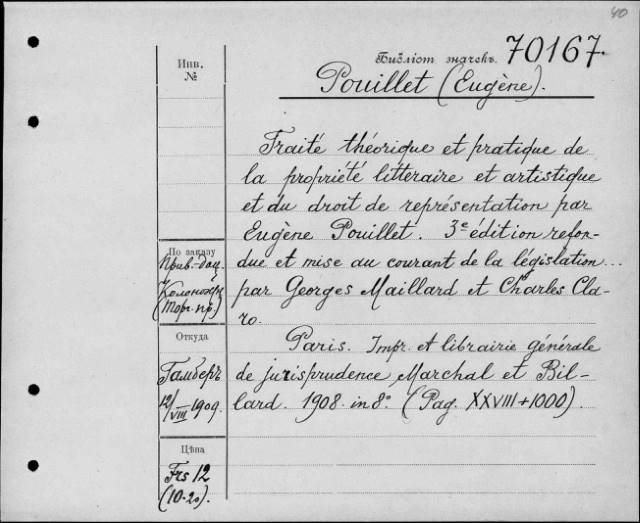 40
Инв.
№
Библіот. значекъ 70167.
Pouillet (Eugène).
Traité théorique et pratique de
la propriété litteraire et artistique
et du droit de représentation par
Eugène Pouillet. 3e édition refon-
due et mise au courant de la législation...
par Georges Maillard et Charles Cla-
ro.
Paris. Impr. et librairie générale
de jurisprudence Marchal et Bil-
lard. 1908. in 8°. (Pag. XXVIII+1000).
По заказу
Прив.-доц.
(Торг. пр.)
Откуда
Гамберъ
12/VIII 1909.
Цѣна
Frs 12
(10.20).